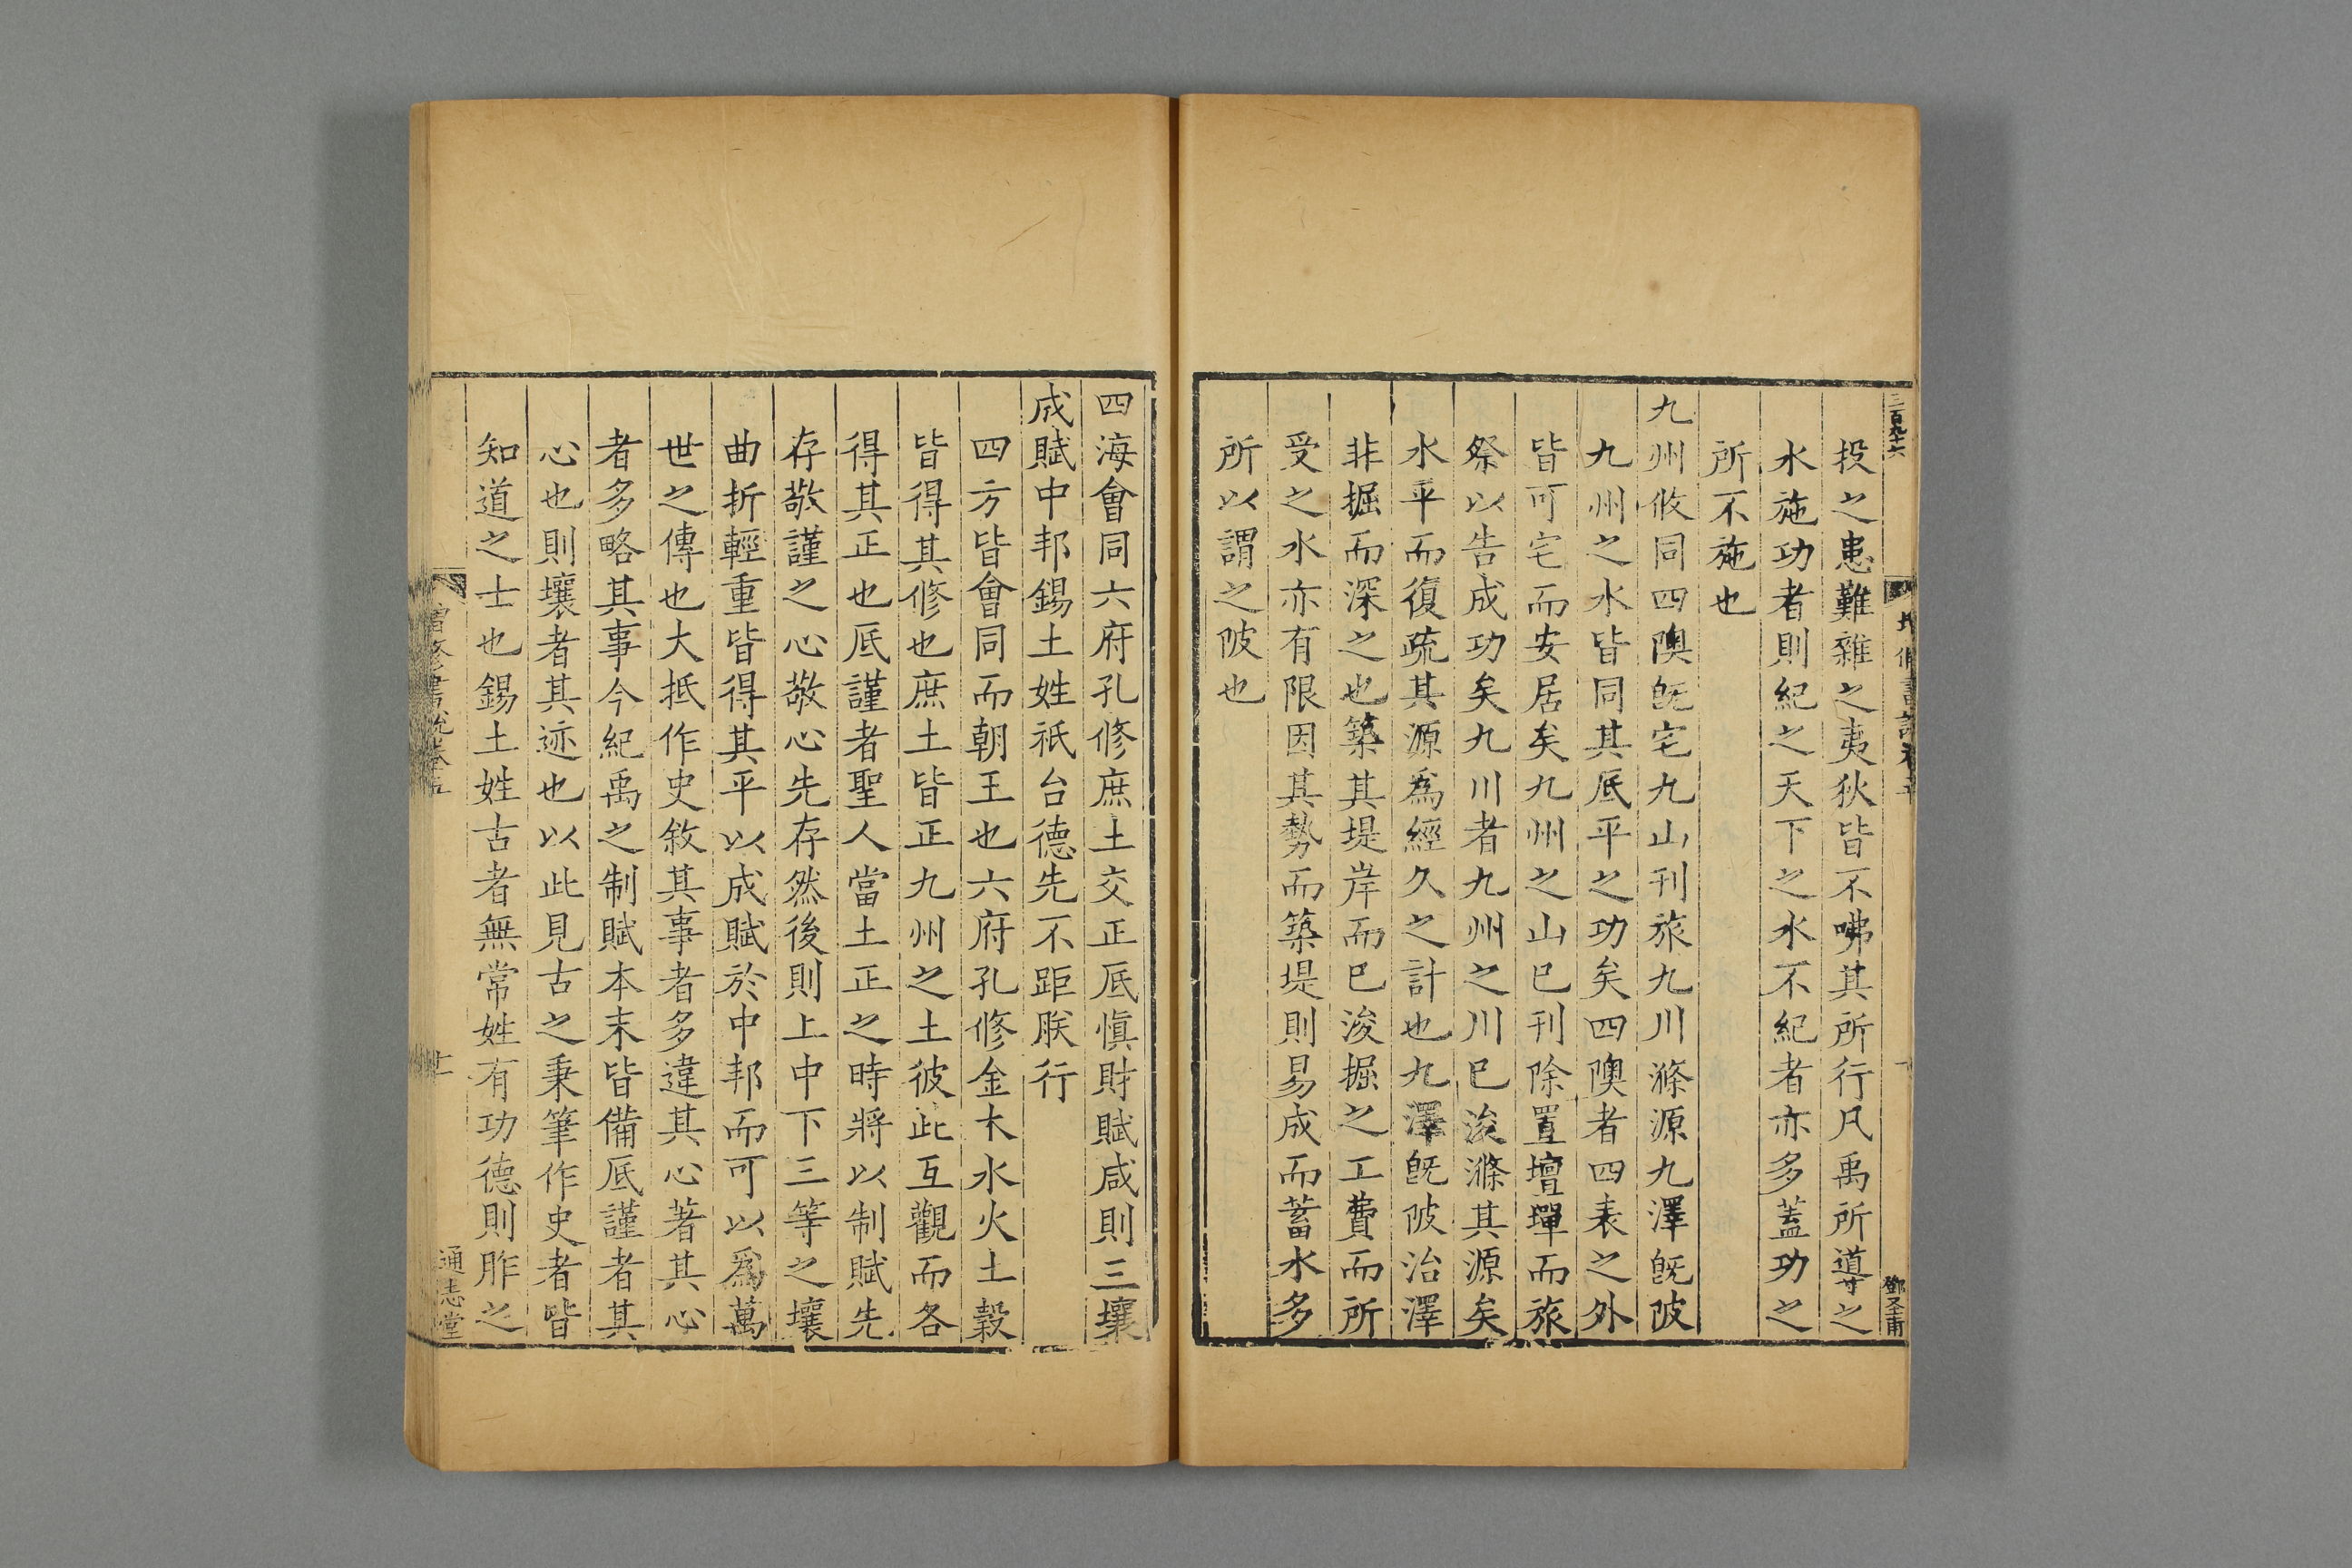 三百九十六
鄧又甫
投之患難雜之夷狄皆不咈其所行凡禹所導之
水施功者則紀之天下之水不紀者亦多蓋功之
所不施也
九州攸同四隩旣宅九山刊旅九川滌源九澤旣陂
九州之水皆同其底平之功矣四隩者四表之外
皆可宅而安居矣九州之山巳刊除置壇墠而旅
祭以告成功矣九川者九州之川巳浚滌其源矣
水平而復疏其源爲經久之計也九澤旣陂治澤
非掘而深之也築其堤岸而巳浚掘之工費而所
受之水亦有限因其勢而築堤則易成而蓄水多
所以謂之陂也
四海會同六府孔修庶土交正底愼財賦咸則三壤
成賦中邦錫土姓祇台德先不距朕行
四方皆會同而朝王也六府孔修金木水火土穀
皆得其修也庶土皆正九州之土彼此互觀而各
得其正也底謹者聖人當土正之時將以制賦先
存敬謹之心敬心先存然後則上中下三等之壤
曲折輕重皆得其平以成賦於中邦而可以爲萬
世之傳也大抵作史敘其事者多違其心著其心
者多略其事今紀禹之制賦本末皆備底謹者其
心也則壤者其迹也以此見古之秉筆作史者皆
知道之士也錫土姓古者無常姓有功德則胙之
增修書說卷五
通志堂